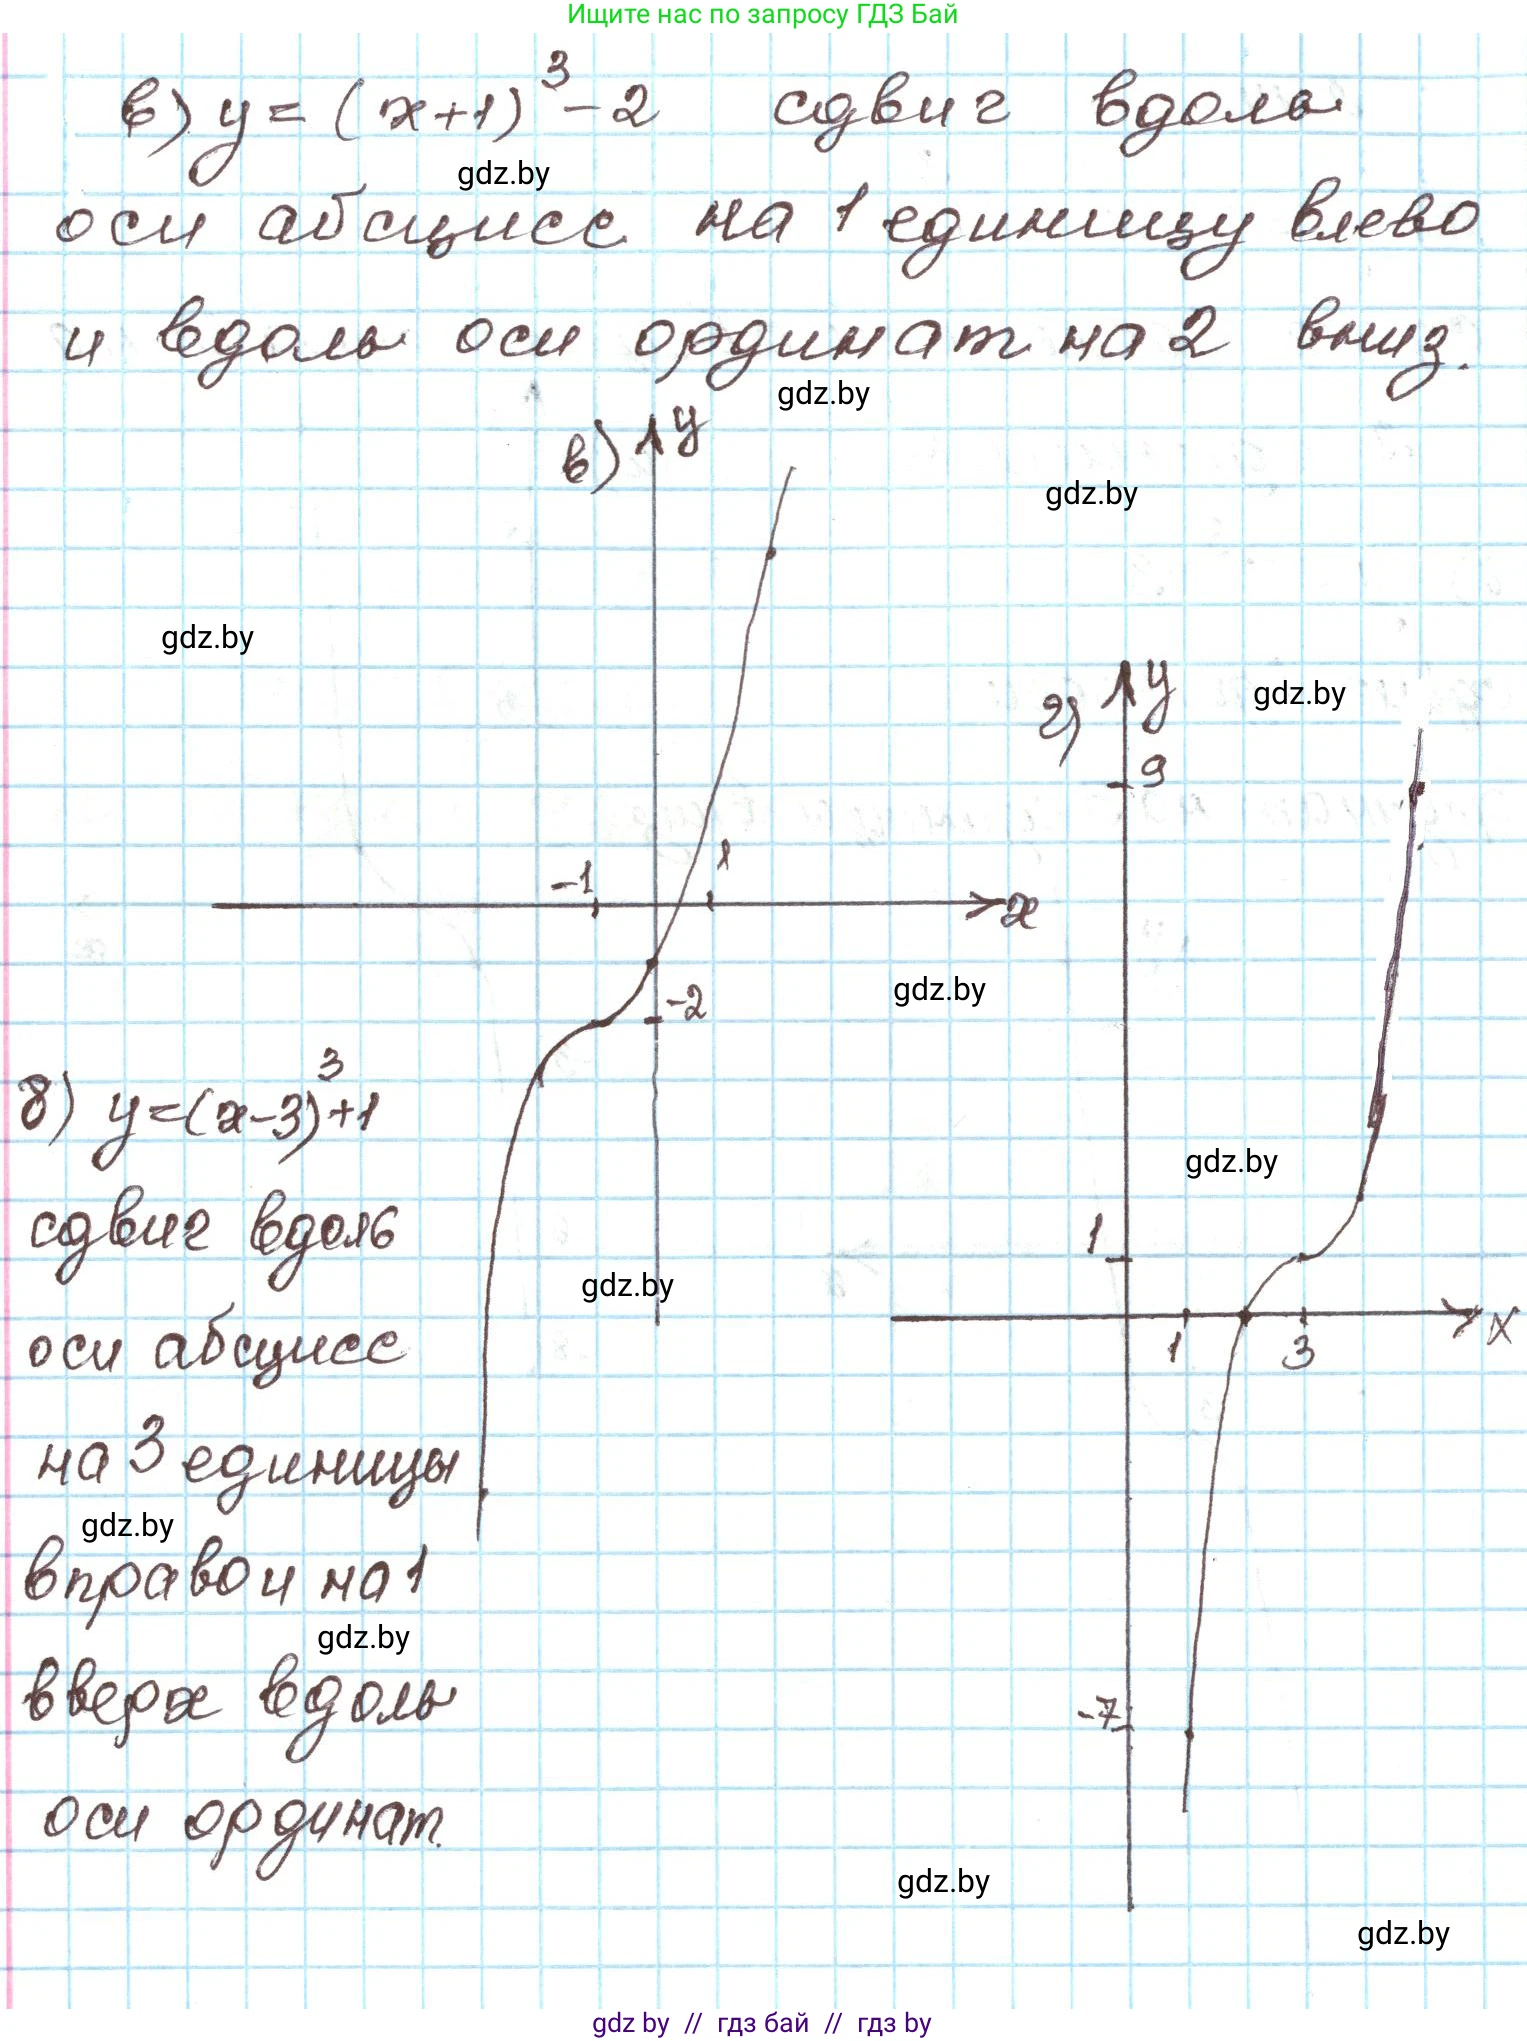 Ищите нас по запросу ГДЗ Бай
в) y = (x+1)³ - 2 сдвиг вдоль
gdz.by
оси абсцисс на 1 единицу влево
и вдоль оси ординат на 2 вниз.
gdz.by
в) y
gdz.by
gdz.by
г) y
gdz.by
9
-1 1
x
gdz.by
-2
8) y=(x-3)³+1
gdz.by
сдвиг вдоль
1
gdz.by
оси абсцисс
1 3 x
на 3 единицы
gdz.by
вправо и на 1
gdz.by
вверх вдоль
-7
оси ординат.
gdz.by
gdz.by
gdz by // гдз бай // гдз by